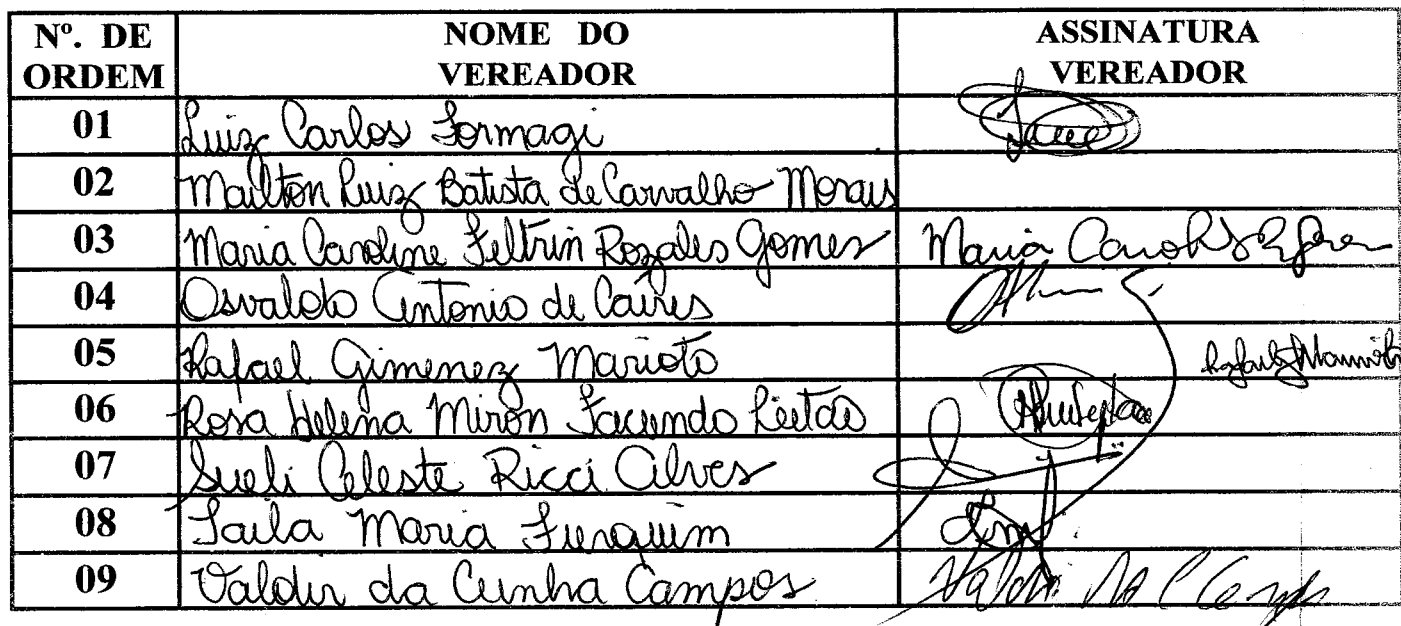 Nº. DE ORDEM NOME DO VEREADOR ASSINATURA VEREADOR
01 Luiz Carlos Formagi
02 Mailton Luiz Batista de Carvalho Morais
03 Maria Caroline Feltrin Rozales Gomes Maria
04 Osvaldo Antonio de Caires
05 Rafael Gimenez Marioto
06 Rosa Helena Miron Facundo Leitão
07 Sueli Celeste Ricci Alves
08 Taila Maria Furquim
09 Valdir da Cunha Campos Valdir